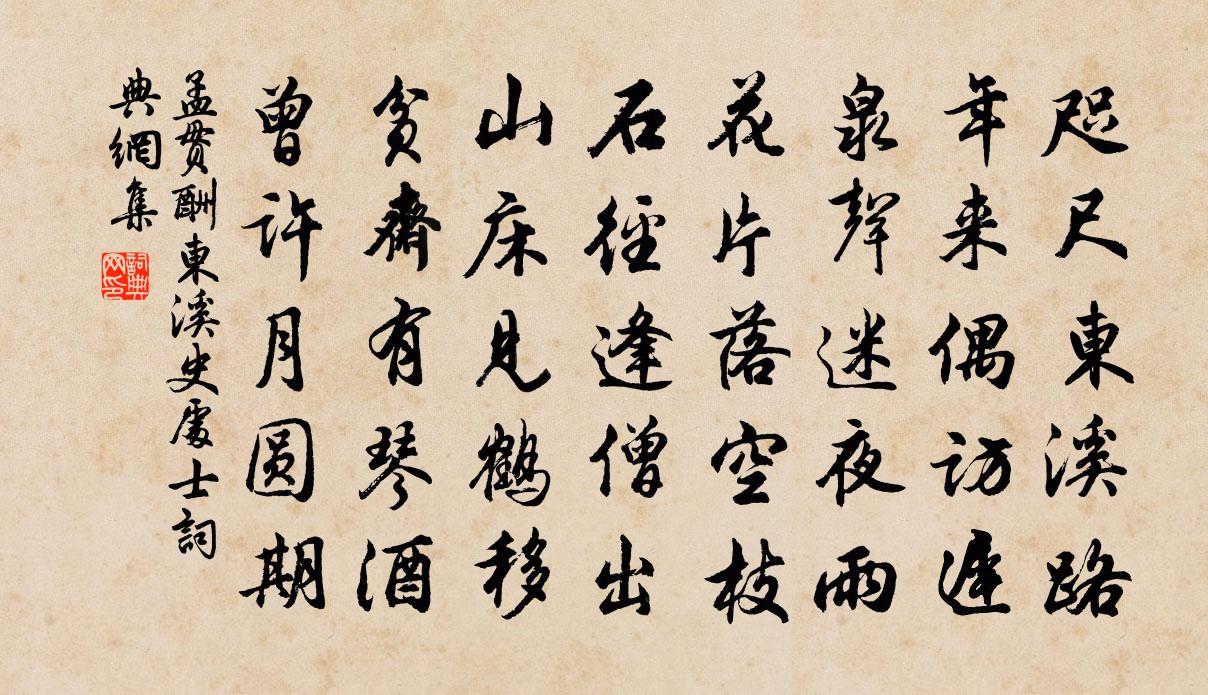 咫尺東溪路
年来偶訪遲
泉聲迷夜雨
花片落空枝
石徑逢僧出
山床見鶴移
貧齋有琴酒
曾許月圆期
孟贯酬東溪史處士詞
典網集
詞典
网印